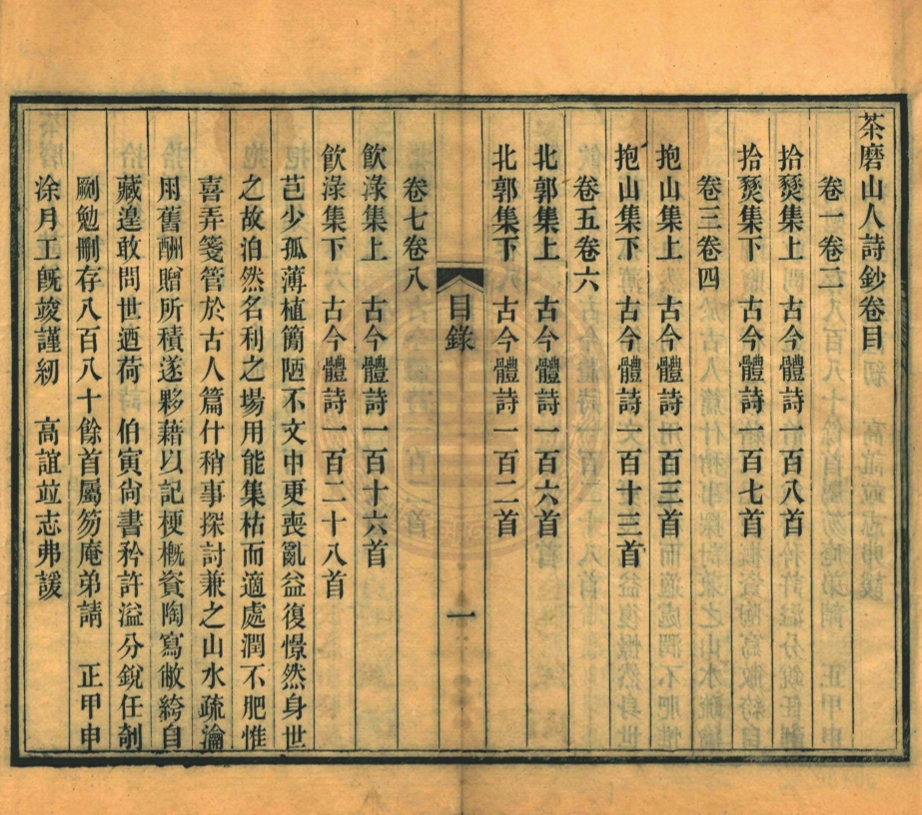 茶磨山人詩鈔卷目
卷一卷二
拾燹集上　古今體詩一百八首
拾燹集下　古今體詩一百七首
卷三卷四
抱山集上　古今體詩一百三首
抱山集下　古今體詩一百十三首
卷五卷六
北郭集上　古今體詩一百六首
北郭集下　古今體詩一百二首
目錄
一
卷七卷八
飲淥集上　古今體詩一百十六首
飲淥集下　古今體詩一百二十八首
芑少孤薄植簡陋不文中更喪亂益復憬然身世
之故泊然名利之場用能集枯而適處潤不肥惟
喜弄箋管於古人篇什稍事探討兼之山水疏瀹
朋舊酬贈所積遂夥藉以記梗概資陶寫敝綺自
藏遑敢問世迺荷　伯寅尙書矜許溢分銳任剞
劂勉刪存八百八十餘首屬笏庵弟請　正甲申
涂月工旣竣謹紉　高誼竝志弗諼